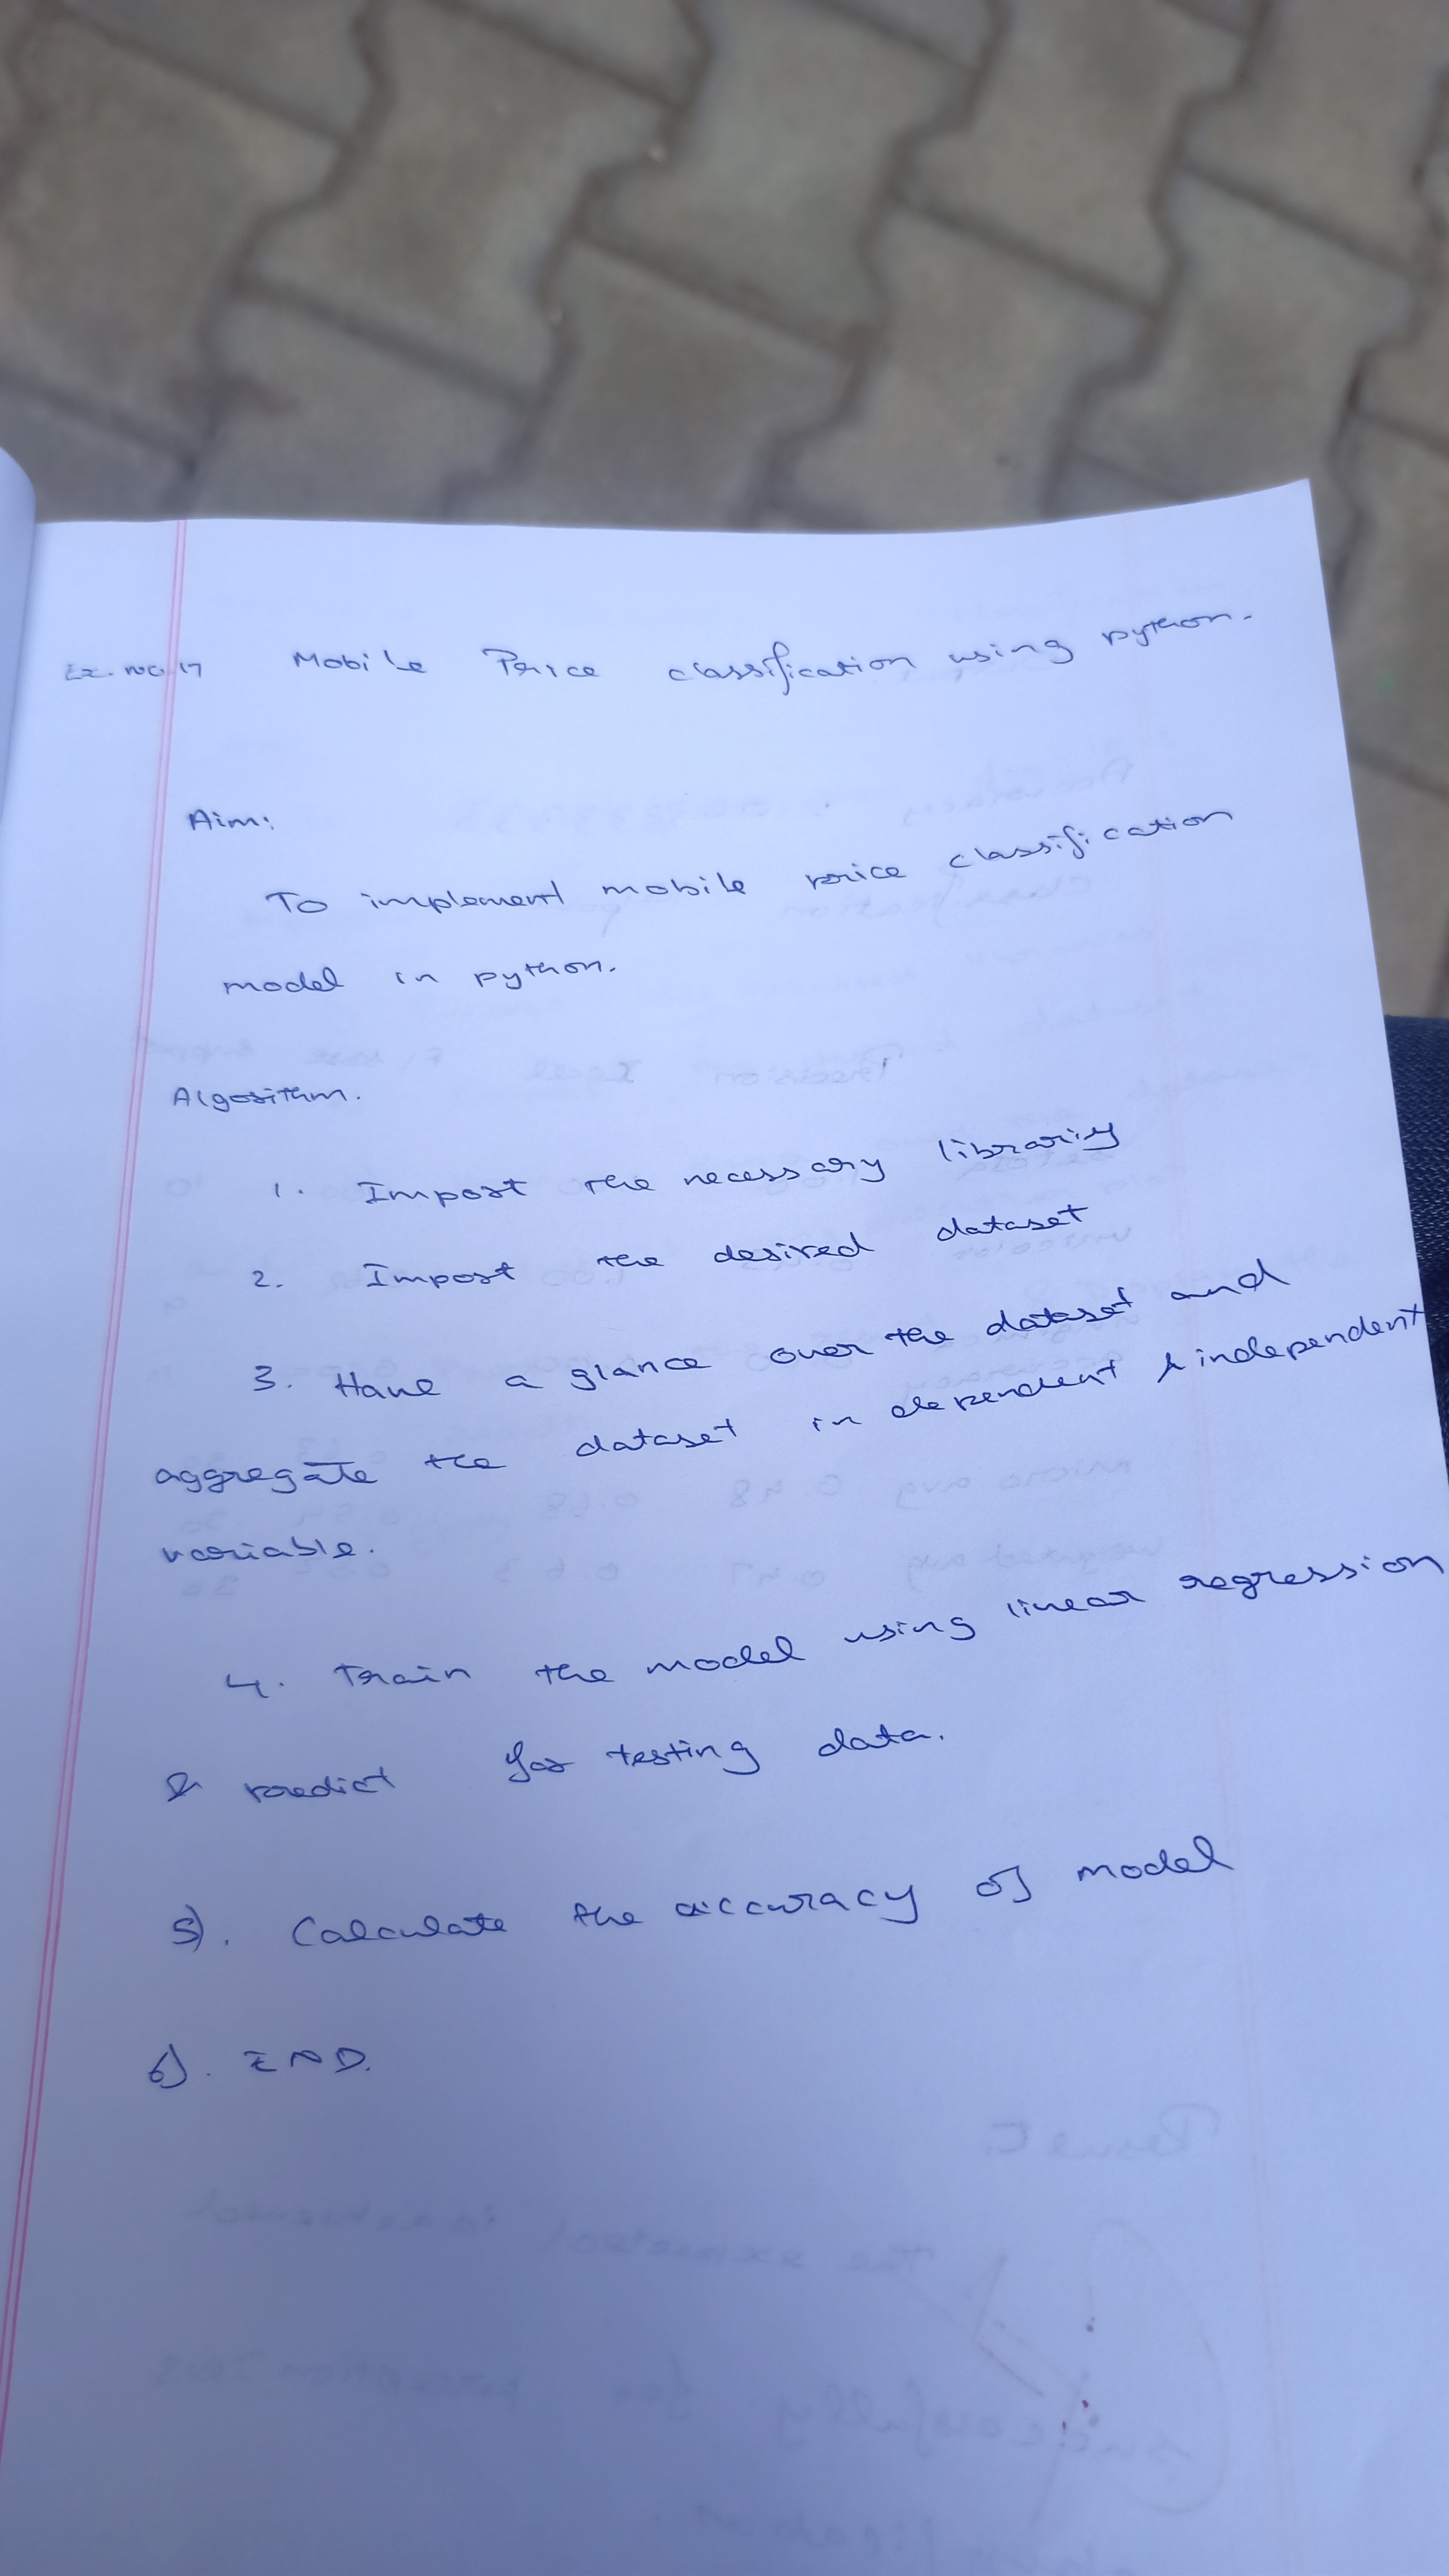 Ex. no. 17 Mobile Price classification using python.
Aim:
To implement mobile price classification
model in python.
Algorithm.
1. Import the necessary librariy
2. Import the desired dataset
3. Have a glance over the dataset and
aggregate the dataset in dependent & independent
variable.
4. Train the model using linear regression
& predict for testing data.
5). Calculate the accuracy of model
6). END.